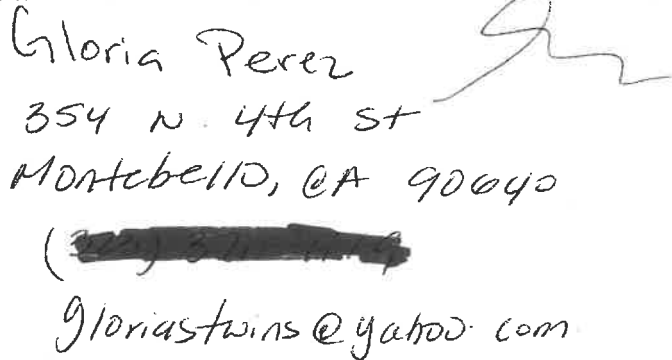 Gloria Perez
354 N. 4th St
Montebello, CA 90640
gloriastwins@yahoo.com